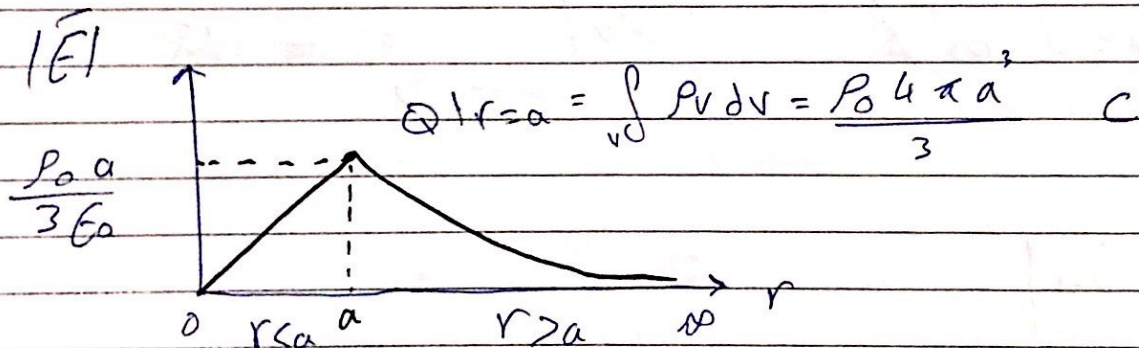 |E̅|
Q|r=a = ∫v ρv dv = ρ₀ 4 π a³ / 3 C
ρ₀ a / 3 ε₀
0 r<a a r>a ∞ r